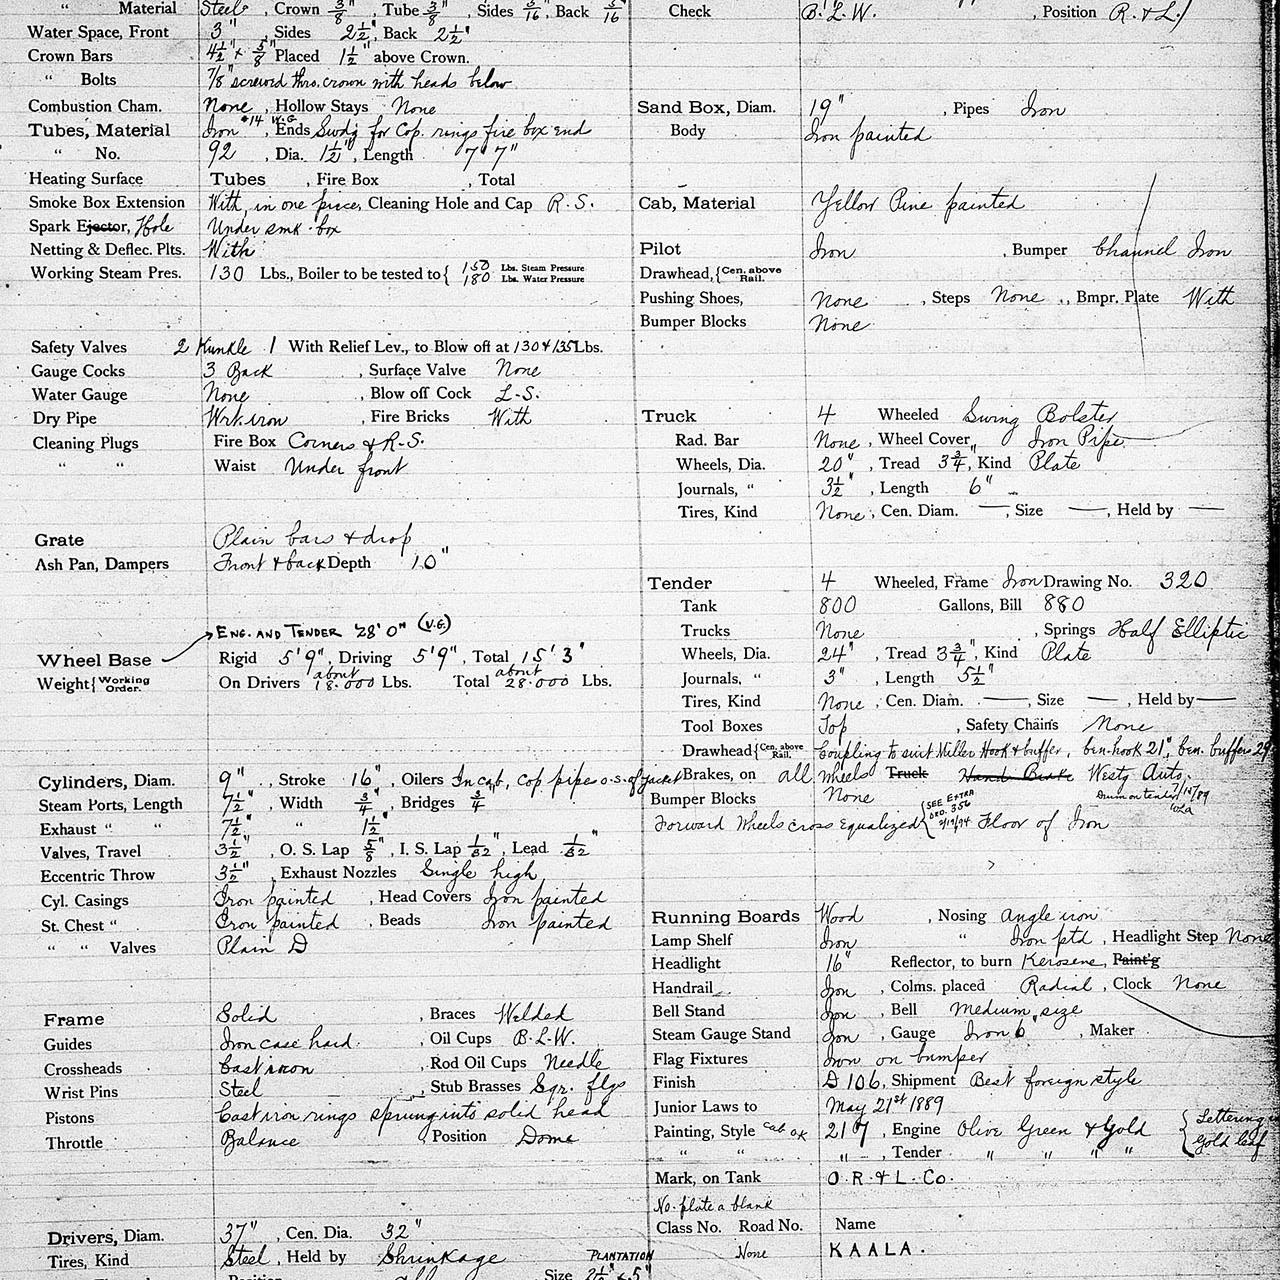 " Material Steel , Crown 3/8" , Tube 3/8" , Sides 5/16" , Back 5/16"
Water Space, Front 3" , Sides 2 1/2" , Back 2 1/2"
Crown Bars 4 1/2" x 5/8" Placed 1 1/2" above Crown.
" Bolts 7/8" screwed thro. crown with heads below
Combustion Cham. None , Hollow Stays None
Tubes, Material Iron #14 W.G. , Ends Swdg for Cop. rings fire box end
" No. 92 , Dia. 1 1/2" , Length 7' 7"
Heating Surface Tubes , Fire Box , Total
Smoke Box Extension With, in one piece, Cleaning Hole and Cap R.S.
Spark Ejector, Hole Under smk. box
Netting & Deflec. Plts. With
Working Steam Pres. 130 Lbs., Boiler to be tested to { 150 Lbs. Steam Pressure
180 Lbs. Water Pressure
Safety Valves 2 Kunkle 1 With Relief Lev., to Blow off at 130 & 135 Lbs.
Gauge Cocks 3 Back , Surface Valve None
Water Gauge None , Blow off Cock L.S.
Dry Pipe Wrt. iron , Fire Bricks With
Cleaning Plugs Fire Box Corners & R.S.
" " Waist Under front
Grate Plain bars & drop
Ash Pan, Dampers Front & back Depth 10"
Eng. and Tender 28' 0" (V.G.)
Wheel Base Rigid 5' 9" , Driving 5' 9" , Total 15' 3"
Weight { Working Order. On Drivers about 18.000 Lbs. Total about 28.000 Lbs.
Cylinders, Diam. 9" , Stroke 16" , Oilers In cab, Cop pipes o.s. of jacket
Steam Ports, Length 7 1/2" , Width 3/4" , Bridges 3/4"
Exhaust " " 7 1/2" " 1 1/2"
Valves, Travel 3 1/2" , O. S. Lap 5/8" , I. S. Lap 1/32" , Lead 1/32"
Eccentric Throw 3 1/2" , Exhaust Nozzles Single high
Cyl. Casings Iron painted , Head Covers Iron painted
St. Chest " Iron painted , Beads Iron painted
" " Valves Plain D
Frame Solid , Braces Welded
Guides Iron case hard. , Oil Cups B.L.W.
Crossheads Cast iron , Rod Oil Cups Needle
Wrist Pins Steel , Stub Brasses Sqr. flgs
Pistons Cast iron rings sprung into solid head
Throttle Balance , Position Dome
Drivers, Diam. 37" , Cen. Dia. 32"
Tires, Kind Steel , Held by Shrinkage
PLANTATION
Position Size 2 1/2" x 5"
Check B.L.W. , Position R. & L.
Sand Box, Diam. 19" , Pipes Iron
Body Iron painted
Cab, Material Yellow Pine painted
Pilot Iron , Bumper Channel Iron
Drawhead, { Cen. above Rail.
Pushing Shoes, None , Steps None , Bmpr. Plate With
Bumper Blocks None
Truck 4 Wheeled Swing Bolster
Rad. Bar None , Wheel Cover Iron Pipe
Wheels, Dia. 20" , Tread 3 3/4" , Kind Plate
Journals, " 3 1/2" , Length 6"
Tires, Kind None , Cen. Diam. — , Size — , Held by —
Tender 4 Wheeled, Frame Iron Drawing No. 320
Tank 800 Gallons, Bill 880
Trucks None , Springs Half Elliptic
Wheels, Dia. 24" , Tread 3 3/4" , Kind Plate
Journals, " 3" , Length 5 1/2"
Tires, Kind None , Cen. Diam. — , Size — , Held by —
Tool Boxes Top , Safety Chains None
Drawhead { Cen. above Rail. Coupling to suit Miller Hook & buffer, cen. hook 21", cen. buffer 29"
Brakes, on all wheels Truck Hand Brake Westg Auto.
Bumper Blocks None Drum on tender
Forward Wheels cross Equalized { SEE EXTRA ORD. 356 2/19/94 Floor of Iron
Running Boards Wood , Nosing Angle iron
Lamp Shelf Iron " Iron ptd , Headlight Step None
Headlight 16" Reflector, to burn Kerosene, Paint'g
Handrail Iron , Colms. placed Radial , Clock None
Bell Stand Iron , Bell Medium size
Steam Gauge Stand Iron , Gauge Iron 6" , Maker
Flag Fixtures Iron on bumper
Finish D 106, Shipment Best foreign style
Junior Laws to May 21st 1889
Painting, Style Cab OK 217 , Engine Olive Green & Gold { Lettering in Gold leaf
" " " , Tender " " " "
Mark, on Tank O.R. & L. Co.
No. plate a blank
Class No. Road No. Name
None KAALA.